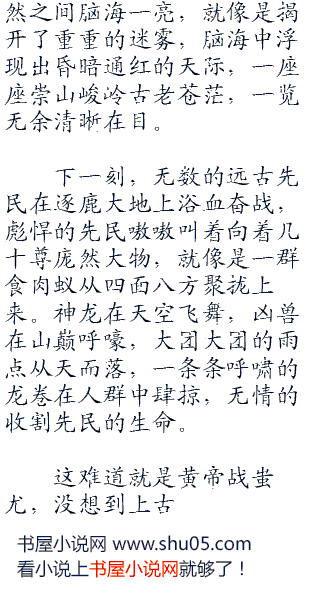 然之间脑海一亮，就像是揭
开了重重的迷雾，脑海中浮
现出昏暗通红的天际，一座
座崇山峻岭古老苍茫，一览
无余清晰在目。
下一刻，无数的远古先
民在逐鹿大地上浴血奋战，
彪悍的先民嗷嗷叫着向着几
十尊庞然大物，就像是一群
食肉蚁从四面八方聚拢上
来。神龙在天空飞舞，凶兽
在山巅呼嚎，大团大团的雨
点从天而落，一条条呼啸的
龙卷在人群中肆掠，无情的
收割先民的生命。
这难道就是黄帝战蚩
尤，没想到上古
书屋小说网 www.shu05.com
看小说上书屋小说网就够了！